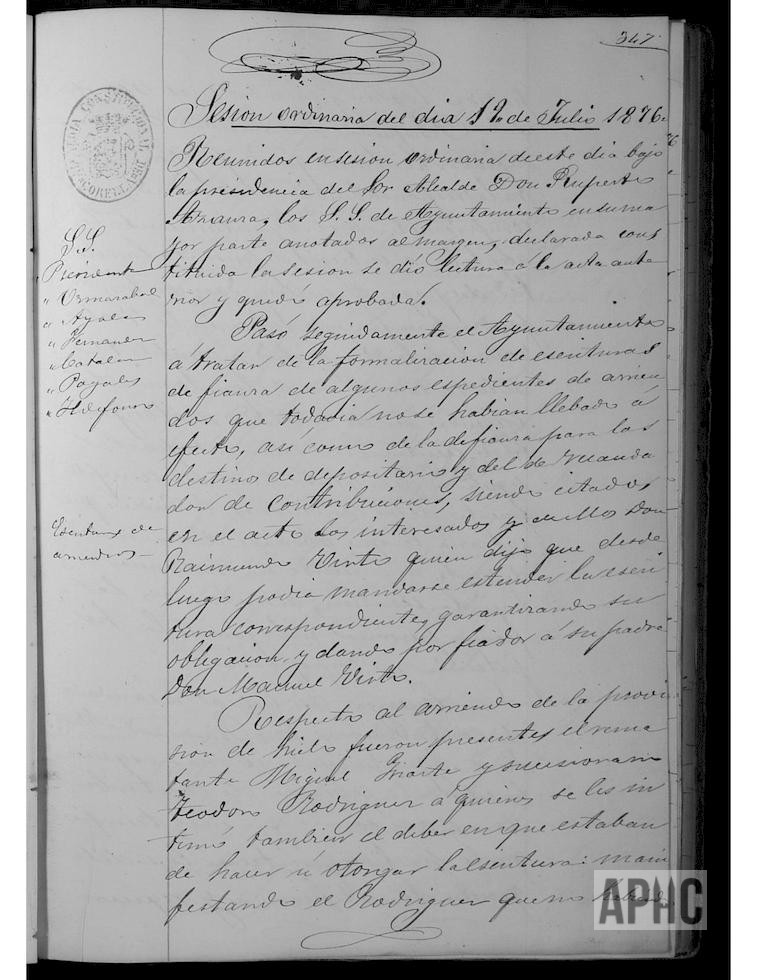 347
Sesion ordinaria del dia 19 de Julio 1876.
Reunidos en sesion ordinaria de este dia bajo
la presidencia del Sor Alcalde Don Ruperto
Aznaura, los S.S. de Ayuntamiento en suma
yor parte anotados al margen, declarada cons
tituida la sesion se dió lectura á la acta ante
rior y quedó aprobada.
S.S.
Presidente
" Ormazabal
" Ayala
" Fernandez
" Catalan
" Pagales
" Yldefonso
Pasó seguidamente el Ayuntamiento
á tratar de la formalizacion de escrituras
de fianza de algunos espedientes de arrien
dos que todavia no se habian llebado á
efecto, asi como de la de fianza para los
destino de depositario y del de recauda
dor de contribuciones, siendo citados
en el acto los interesados y de ellos Don
Raimundo Virto quien dijo que desde
luego podia mandarse estender la escri
tura correspondiente, garantizando su
obligacion y dando por fiador á su padre
Don Manuel Virto.
Escrituras de
arriendos
Respecto al arriendo de la provi
sion de hielo fueron presentes el rema
tante Miguel Yriarte y su
Teodoro Rodriguez á quienes se les in
timó tambien el deber en que estaban
de hacer ú otorgar la escritura: mani
festando el Rodriguez que no
APHC